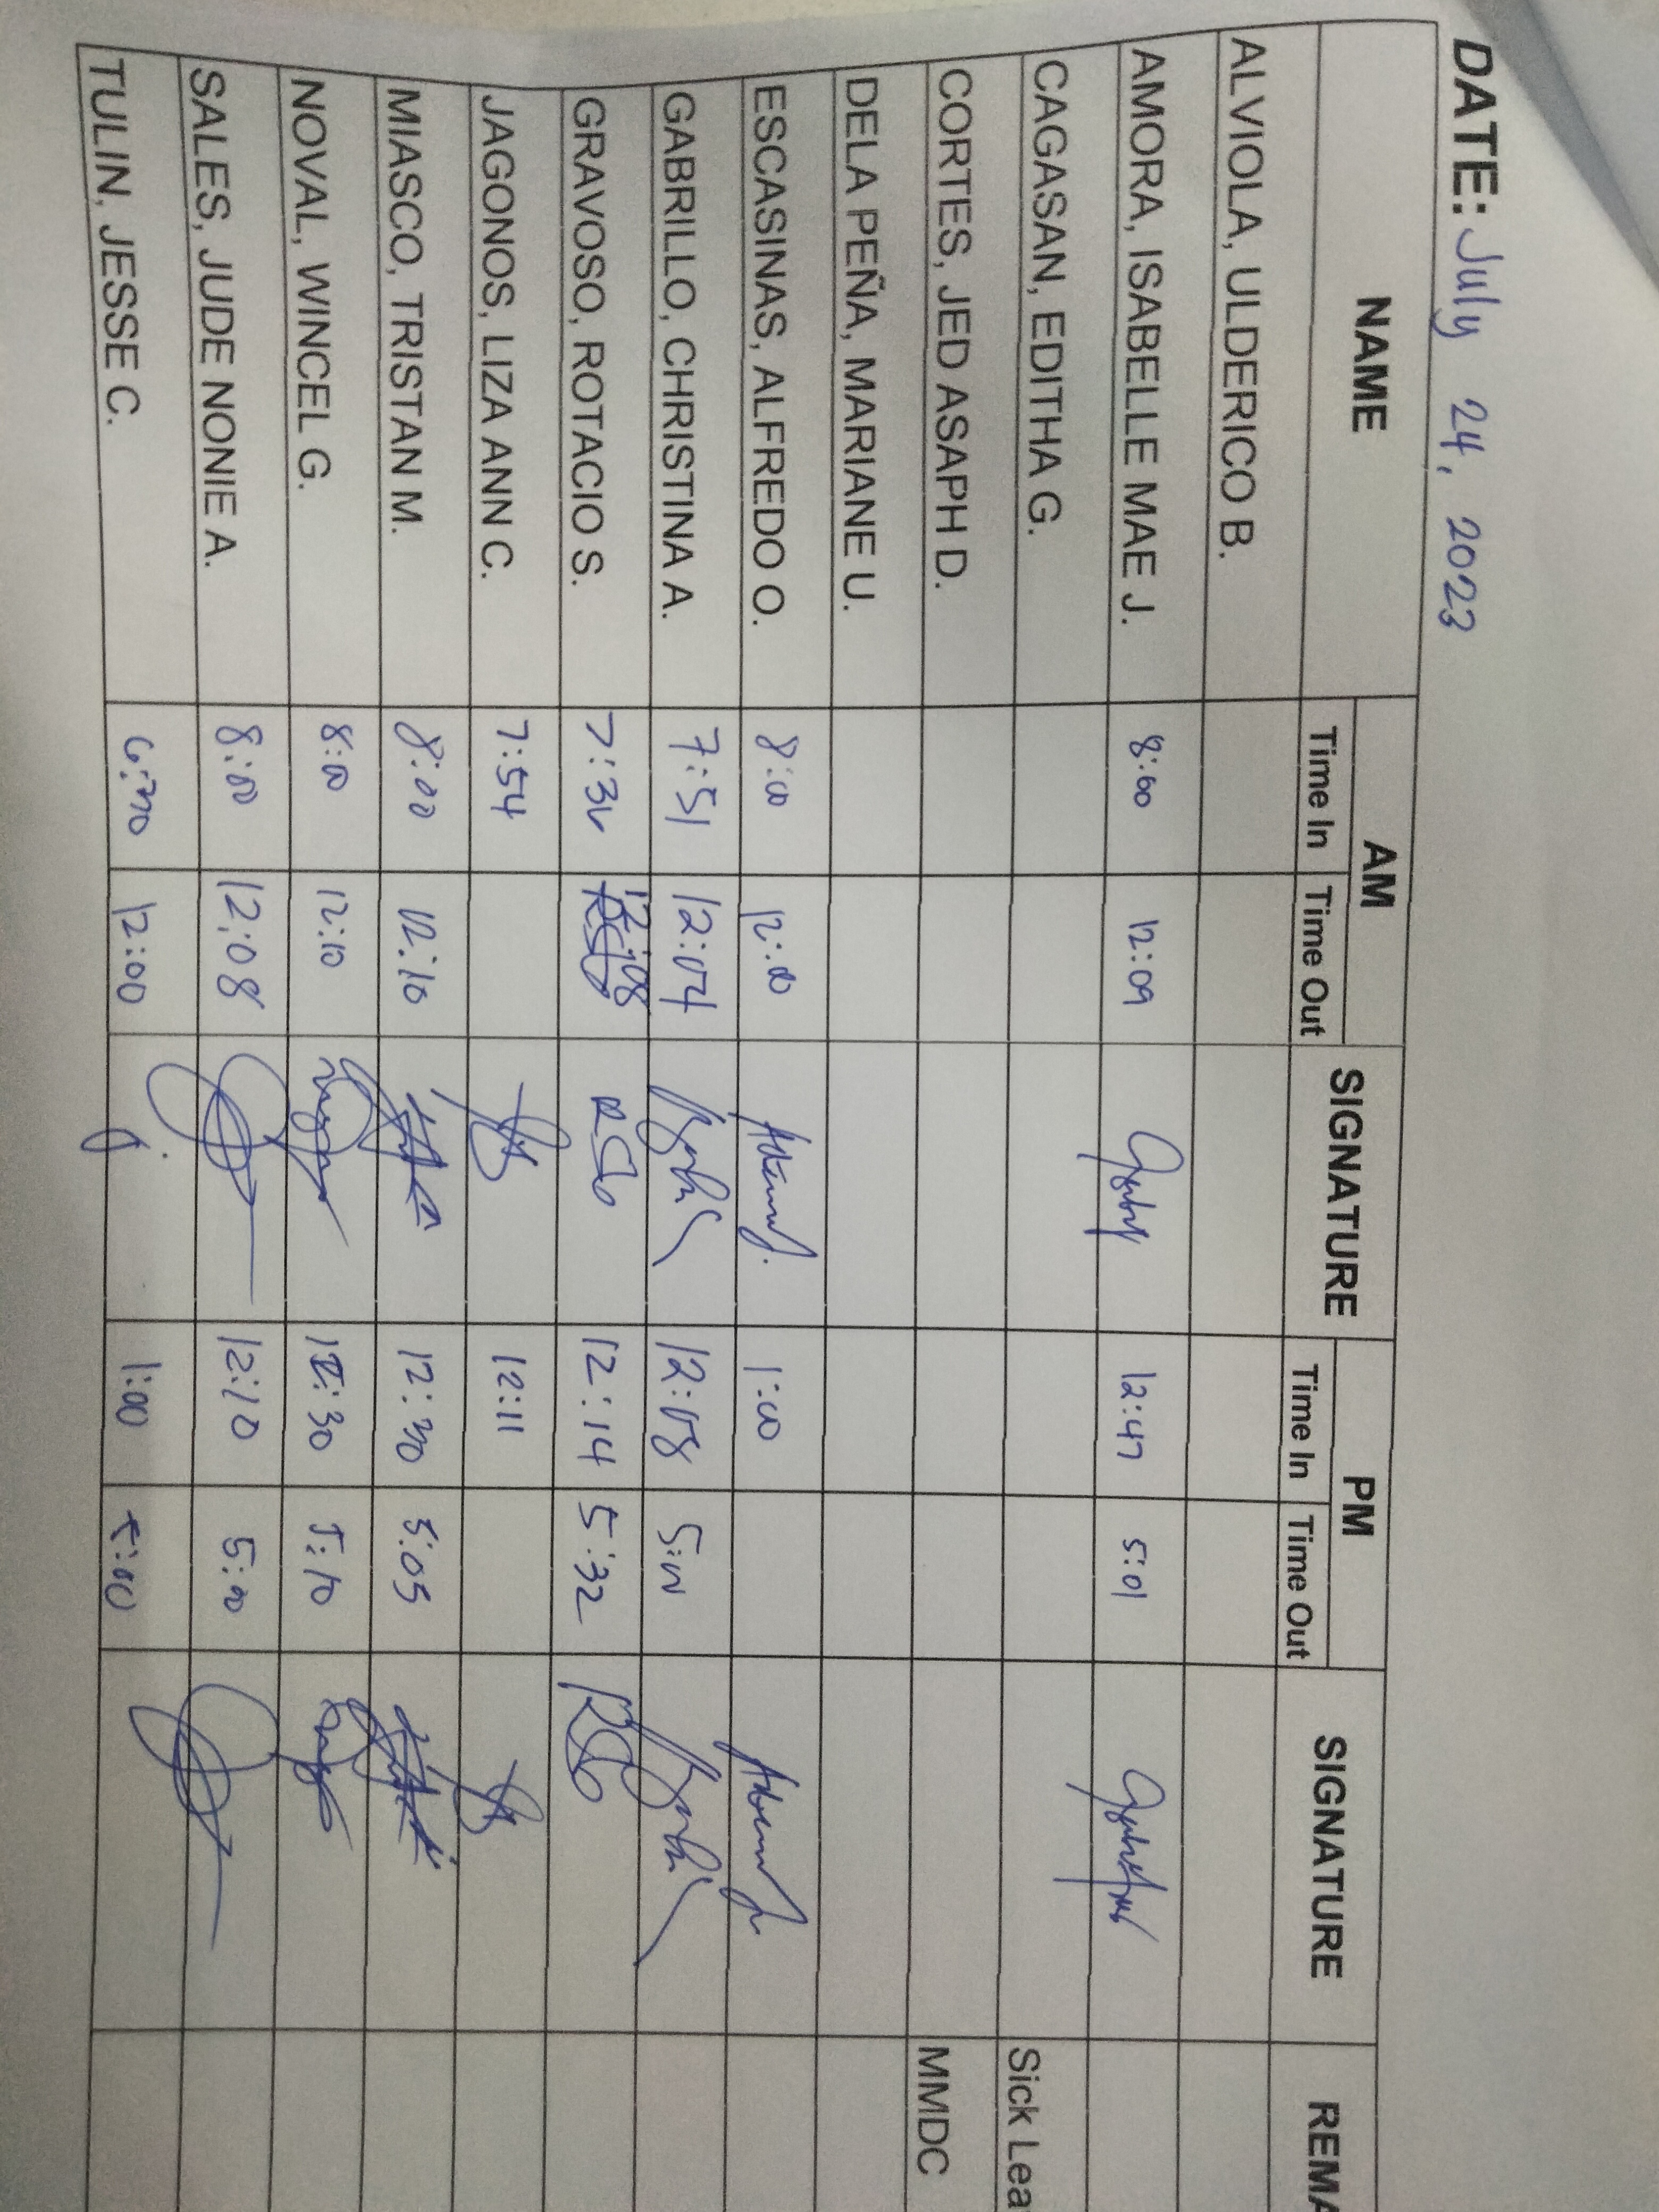 DATE: July 24, 2023
NAME AM SIGNATURE PM SIGNATURE REMA
Time In Time Out Time In Time Out
ALVIOLA, ULDERICO B.
AMORA, ISABELLE MAE J. 8:00 12:09 12:47 5:01
CAGASAN, EDITHA G. Sick Lea
CORTES, JED ASAPH D. MMDC
DELA PEÑA, MARIANE U.
ESCASINAS, ALFREDO O. 8:00 12:00 1:00
GABRILLO, CHRISTINA A. 7:51 12:04 12:08 5:00
GRAVOSO, ROTACIO S. 7:32 12:08 12:14 5:32
JAGONOS, LIZA ANN C. 7:54 12:11
MIASCO, TRISTAN M. 8:00 12:10 12:30 5:05
NOVAL, WINCEL G. 8:00 12:10 12:30 5:10
SALES, JUDE NONIE A. 8:00 12:08 12:10 5:00
TULIN, JESSE C. 6:30 12:00 1:00 5:00